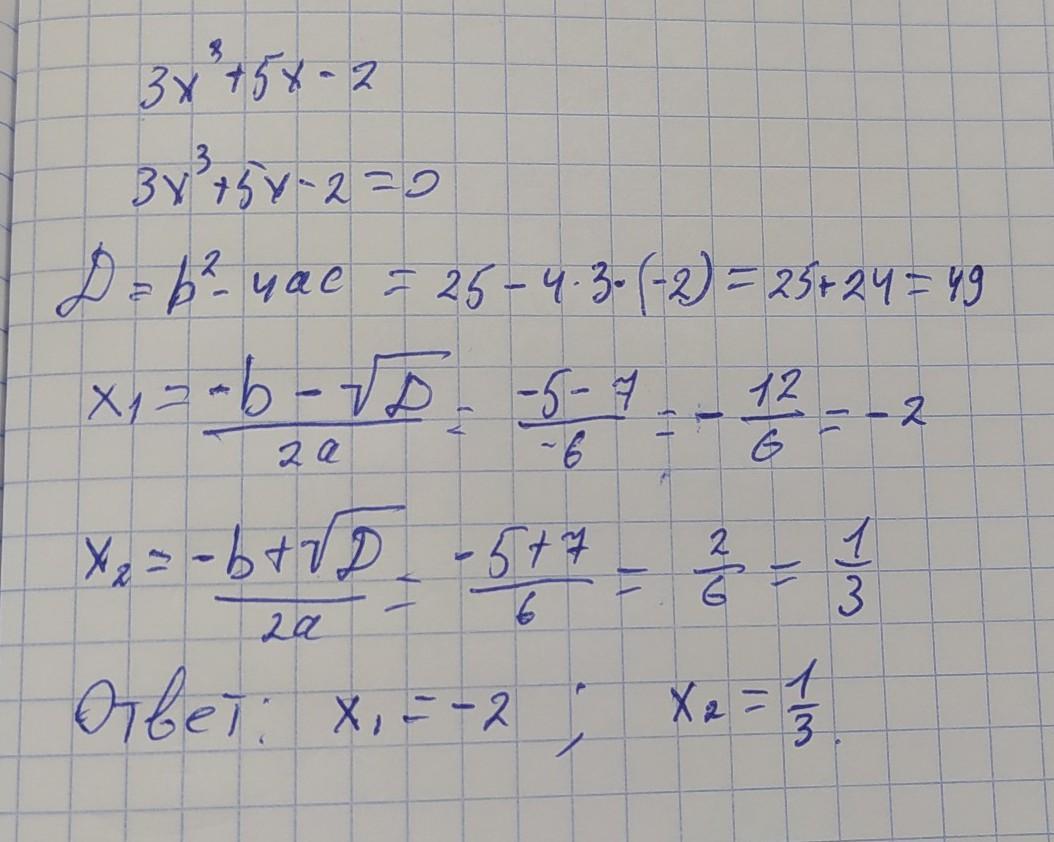 3x³+5x-2
3x³+5x-2=0
D=b²-4ac = 25-4·3·(-2)=25+24=49
x₁=(-b-√D)/(2a)=(-5-7)/(-6)=-12/6=-2
x₂=(-b+√D)/(2a)=(-5+7)/6=2/6=1/3
Ответ: x₁=-2; x₂=1/3.